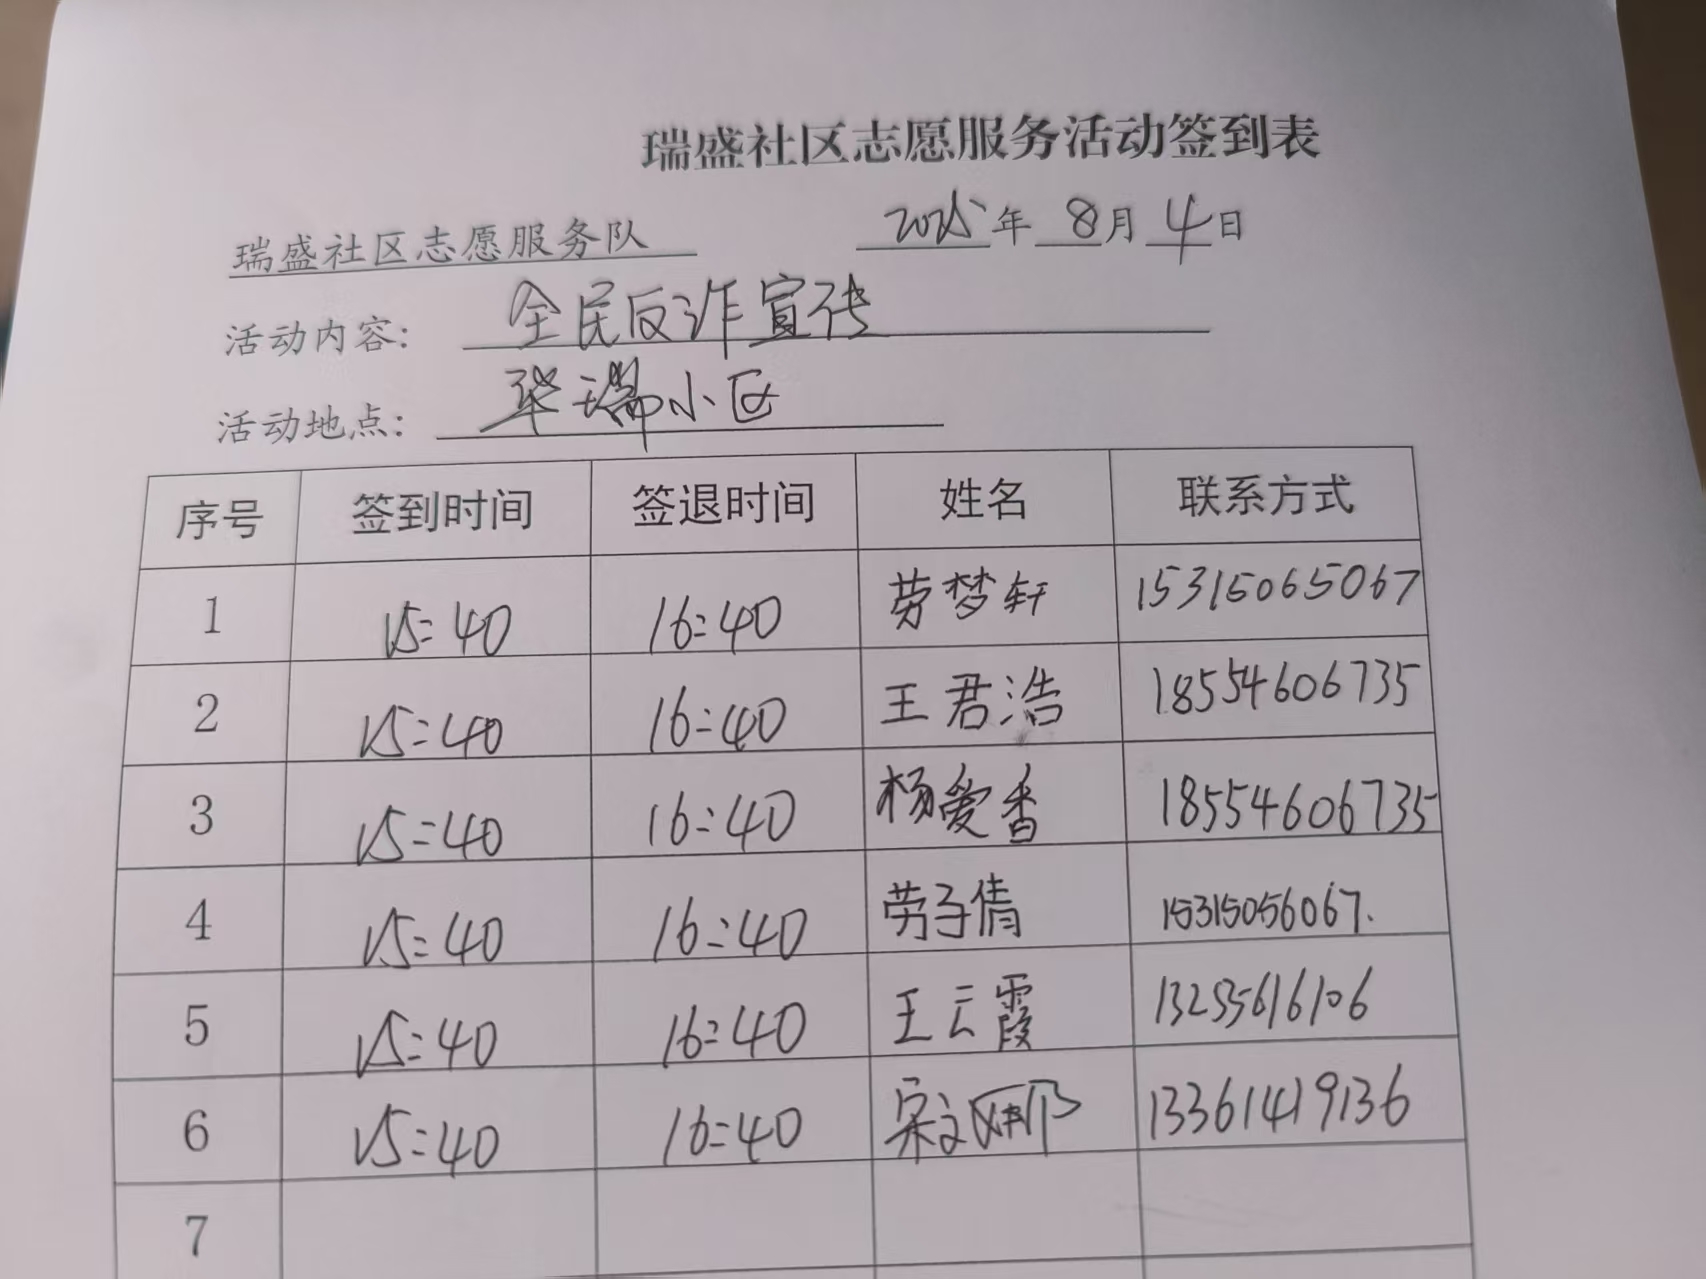 瑞盛社区志愿服务活动签到表
瑞盛社区志愿服务队 2025年 8月 4日
活动内容: 全民反诈宣传
活动地点: 华瑞小区
序号 签到时间 签退时间 姓名 联系方式
1 15:40 16:40 劳梦轩 15315065067
2 15:40 16:40 王君浩 18554606735
3 15:40 16:40 杨爱香 18554606735
4 15:40 16:40 劳子倩 15315056067.
5 15:40 16:40 王云霞 13235616106
6 15:40 16:40 宋文娜 13361419136
7